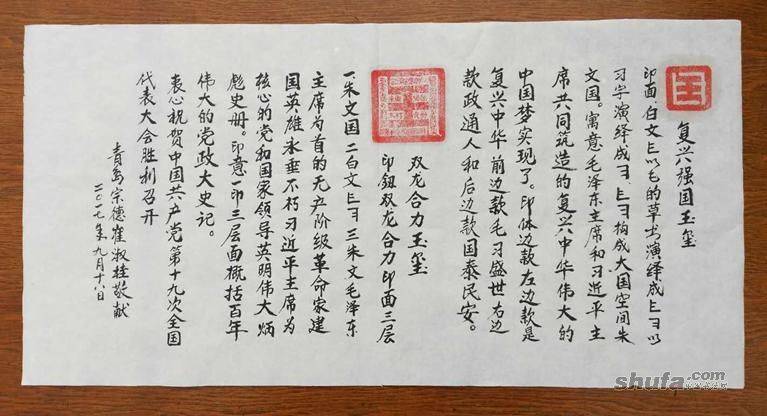 复兴强国玉玺
印面.白文E彐以毛的草书演绎成E彐以
习字演绎成彐E彐构成大国空间朱
文国。寓意毛泽东主席和习近平主
席共同筑造的复兴中华伟大的
中国梦实现了。印体边款左边款是
复兴中华前边款毛习盛世右边
款政通人和后边款国泰民安。
双龙合力玉玺
印钮双龙合力印面三层
一.朱文国二白文E彐三朱文毛泽东
主席为首的无产阶级革命家建
国英雄永垂不朽习近平主席为
核心的党和国家领导英明伟大炳
彪史册。印意一印三层面概括百年
伟大的党政大史记。
衷心祝贺中国共产党第十九次全国
代表大会胜利召开
青岛宗德崔淑桂敬献
二〇一七年九月十八日
shufa.com